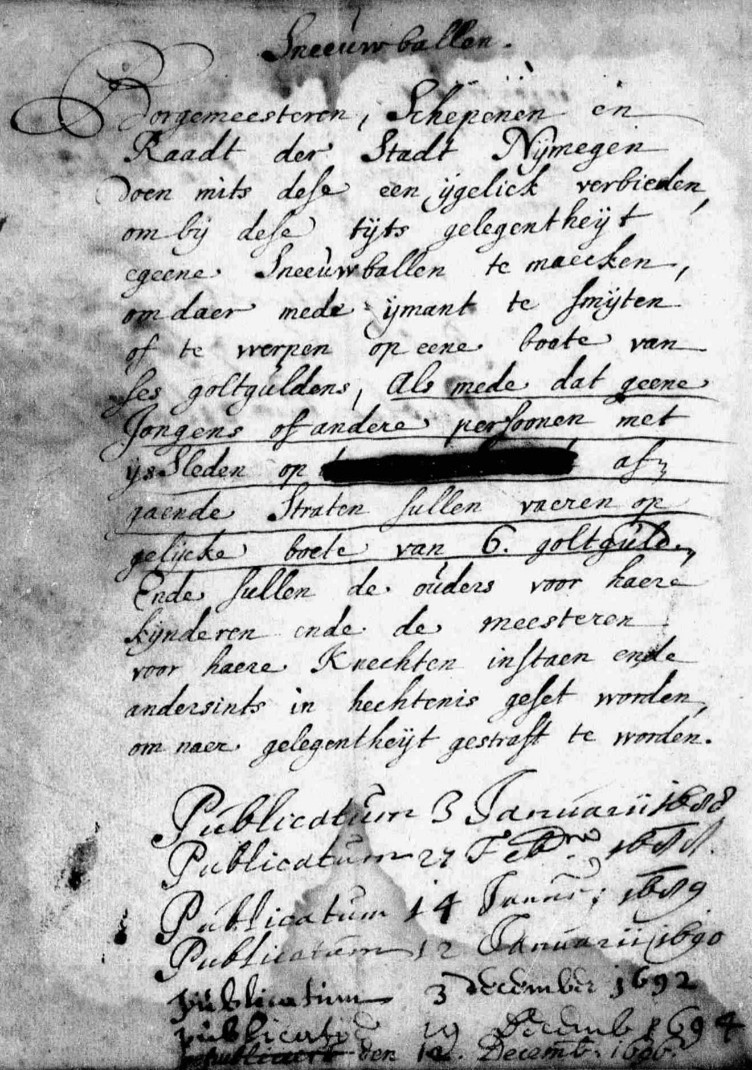 Sneeuwballen.
Borgemeesteren, Schepenen en
Raadt der Stadt Nijmegen
doen mits dese een ijgelick verbieden,
om bij dese tijts gelegentheijt
egeene Sneeuwballen te maecken,
om daer mede ijmant te smijten
of te werpen op eene boete van
ses goltguldens, Als mede dat geene
Jongens of andere persoonen met
ijs Sleden op af-
gaende Straten sullen vaeren op
gelijcke boete van 6. goltguld.
Ende sullen de ouders voor haere
kijnderen ende de meesteren
voor haere Knechten instaen ende
andersints in hechtenis geset worden,
om naer gelegentheijt gestraft te worden.
Publicatum 3 Januarii 1688
Publicatum 27 1688.
Publicatum 14 1689
Publicatum 12 Januarii 1690
publicatum 3 december 1692
19 Decemb 1694
den 12. Decemb. 1696.